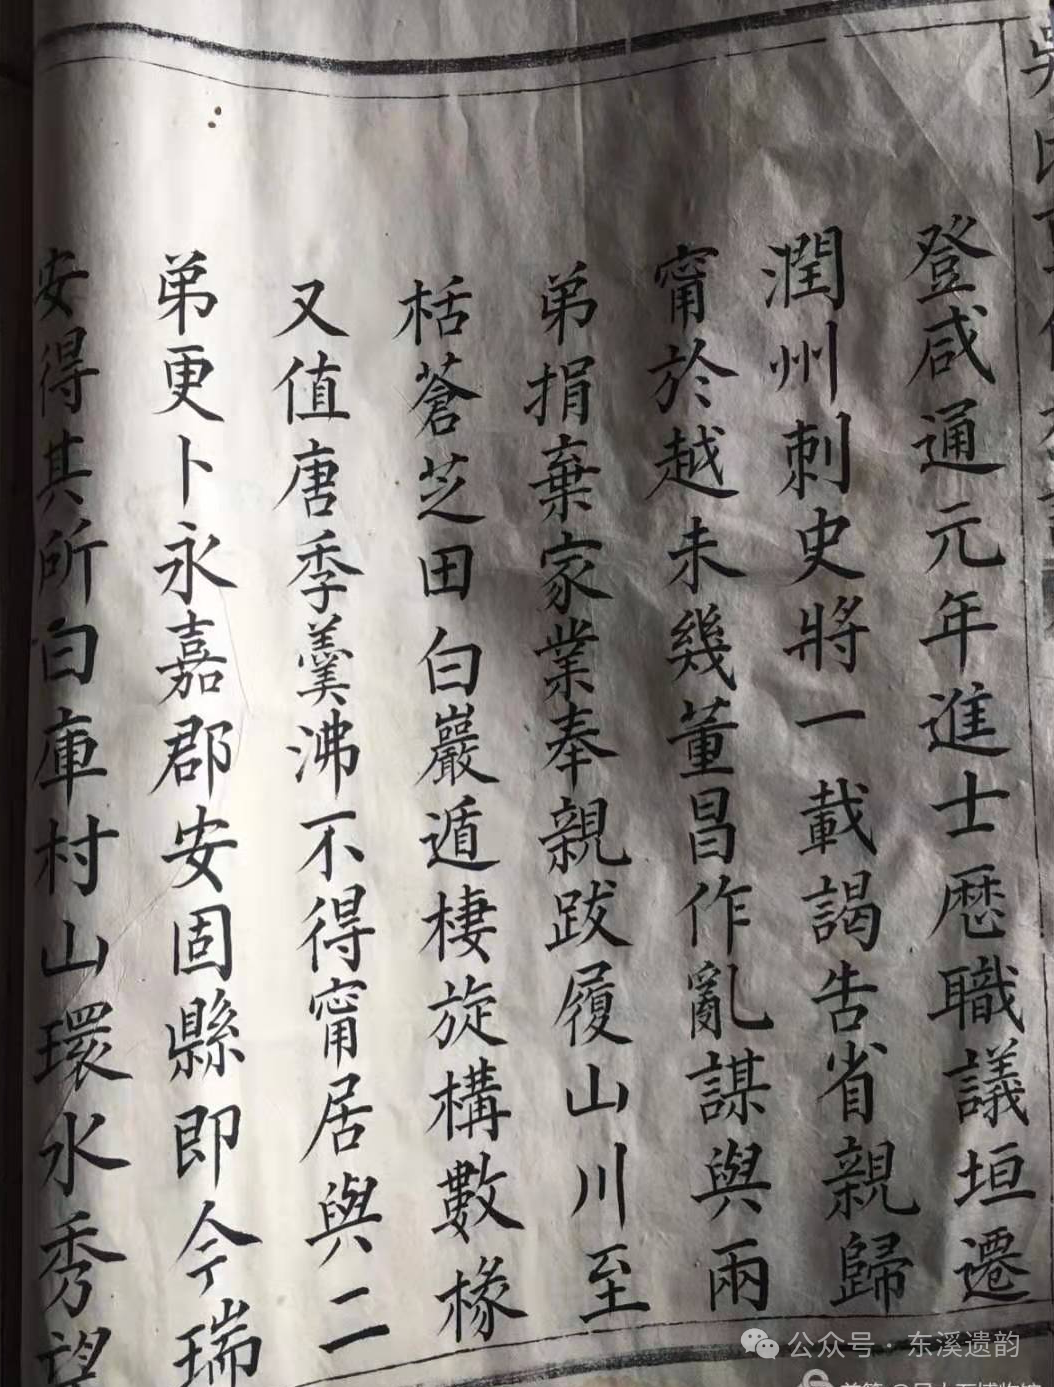 登咸通元年進士歷職議垣遷
潤州刺史將一載謁告省親歸
甯於越未幾董昌作亂謀與兩
弟捐棄家業奉親跋履山川至
栝蒼芝田白巖遁棲旋構數椽
又值唐季羹沸不得甯居與二
弟更卜永嘉郡安固縣即今瑞
安得其所白庫村山環水秀望
公众号·东溪遗韵